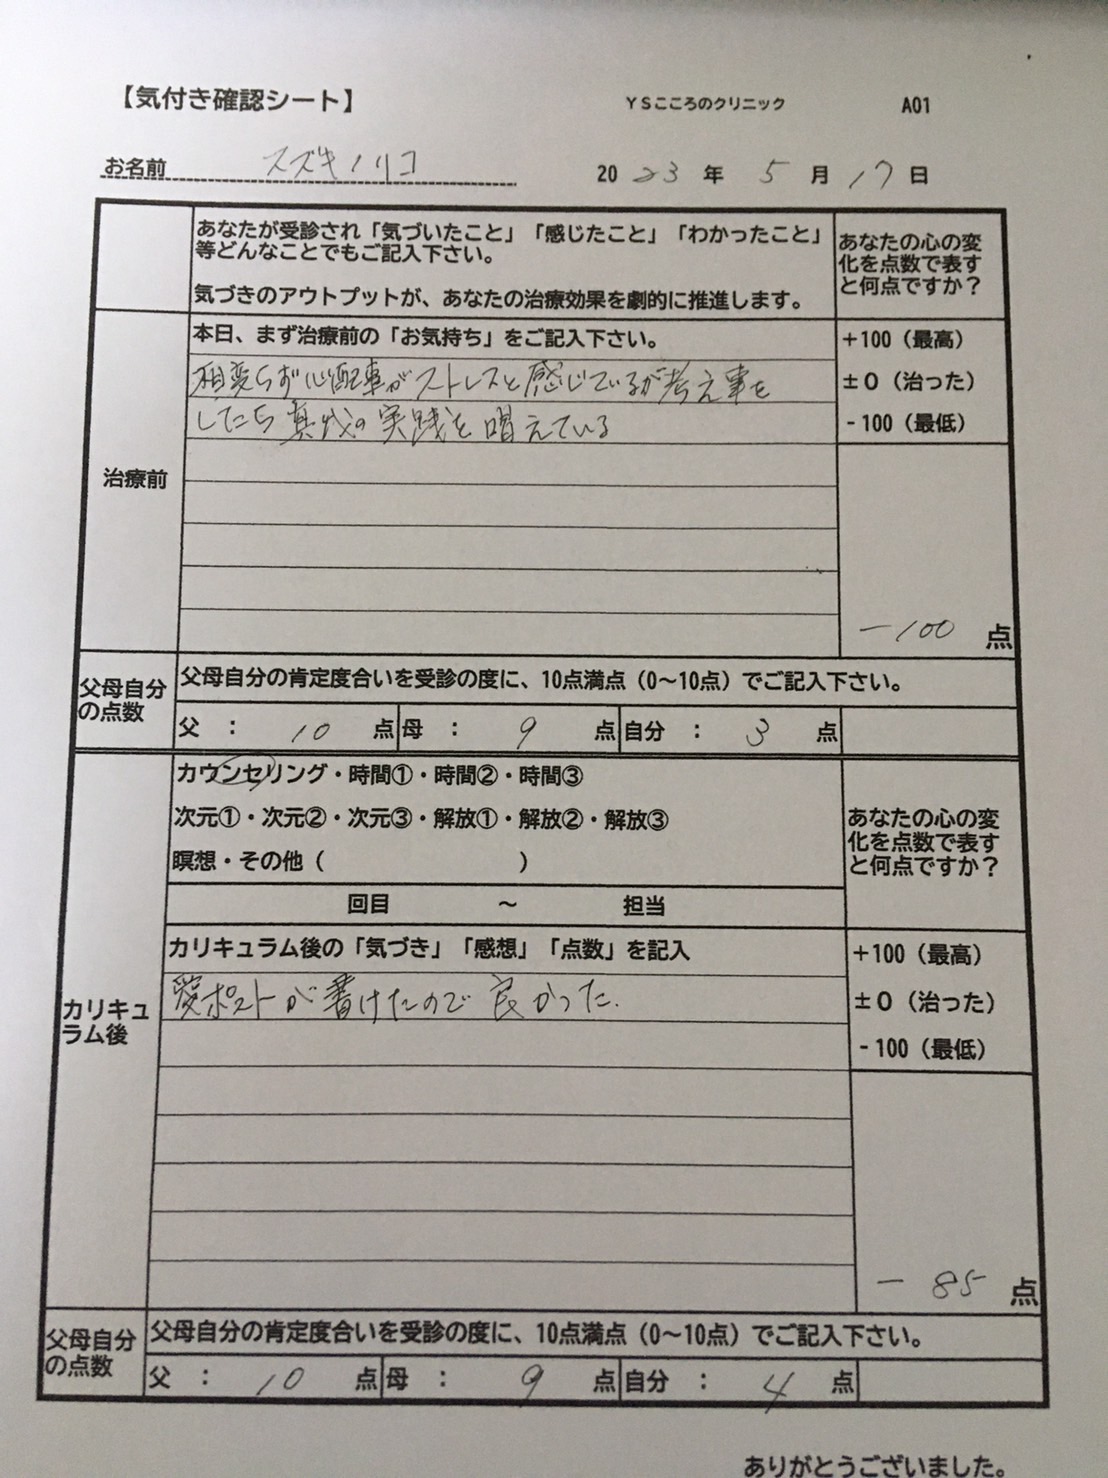 【気付き確認シート】 YSこころのクリニック A01
お名前 スズキノリコ 2023年 5月 17日
あなたが受診され「気づいたこと」「感じたこと」「わかったこと」
等どんなことでもご記入下さい。
気づきのアウトプットが、あなたの治療効果を劇的に推進します。
あなたの心の変
化を点数で表す
と何点ですか?
治療前
本日、まず治療前の「お気持ち」をご記入下さい。
相変らず心配事がストレスと感じているが考え事を
したら真我の実践を唱えている
+100(最高)
±0(治った)
-100(最低)
-100 点
父母自分
の点数
父母自分の肯定度合いを受診の度に、10点満点(0〜10点)でご記入下さい。
父 : 10 点 母 : 9 点 自分 : 3 点
カリキュ
ラム後
カウンセリング・時間①・時間②・時間③
次元①・次元②・次元③・解放①・解放②・解放③
瞑想・その他( )
回目 〜 担当
あなたの心の変
化を点数で表す
と何点ですか?
カリキュラム後の「気づき」「感想」「点数」を記入
愛ポストが書けたので良かった.
+100(最高)
±0(治った)
-100(最低)
-85 点
父母自分
の点数
父母自分の肯定度合いを受診の度に、10点満点(0〜10点)でご記入下さい。
父 : 10 点 母 : 9 点 自分 : 4 点
ありがとうございました。